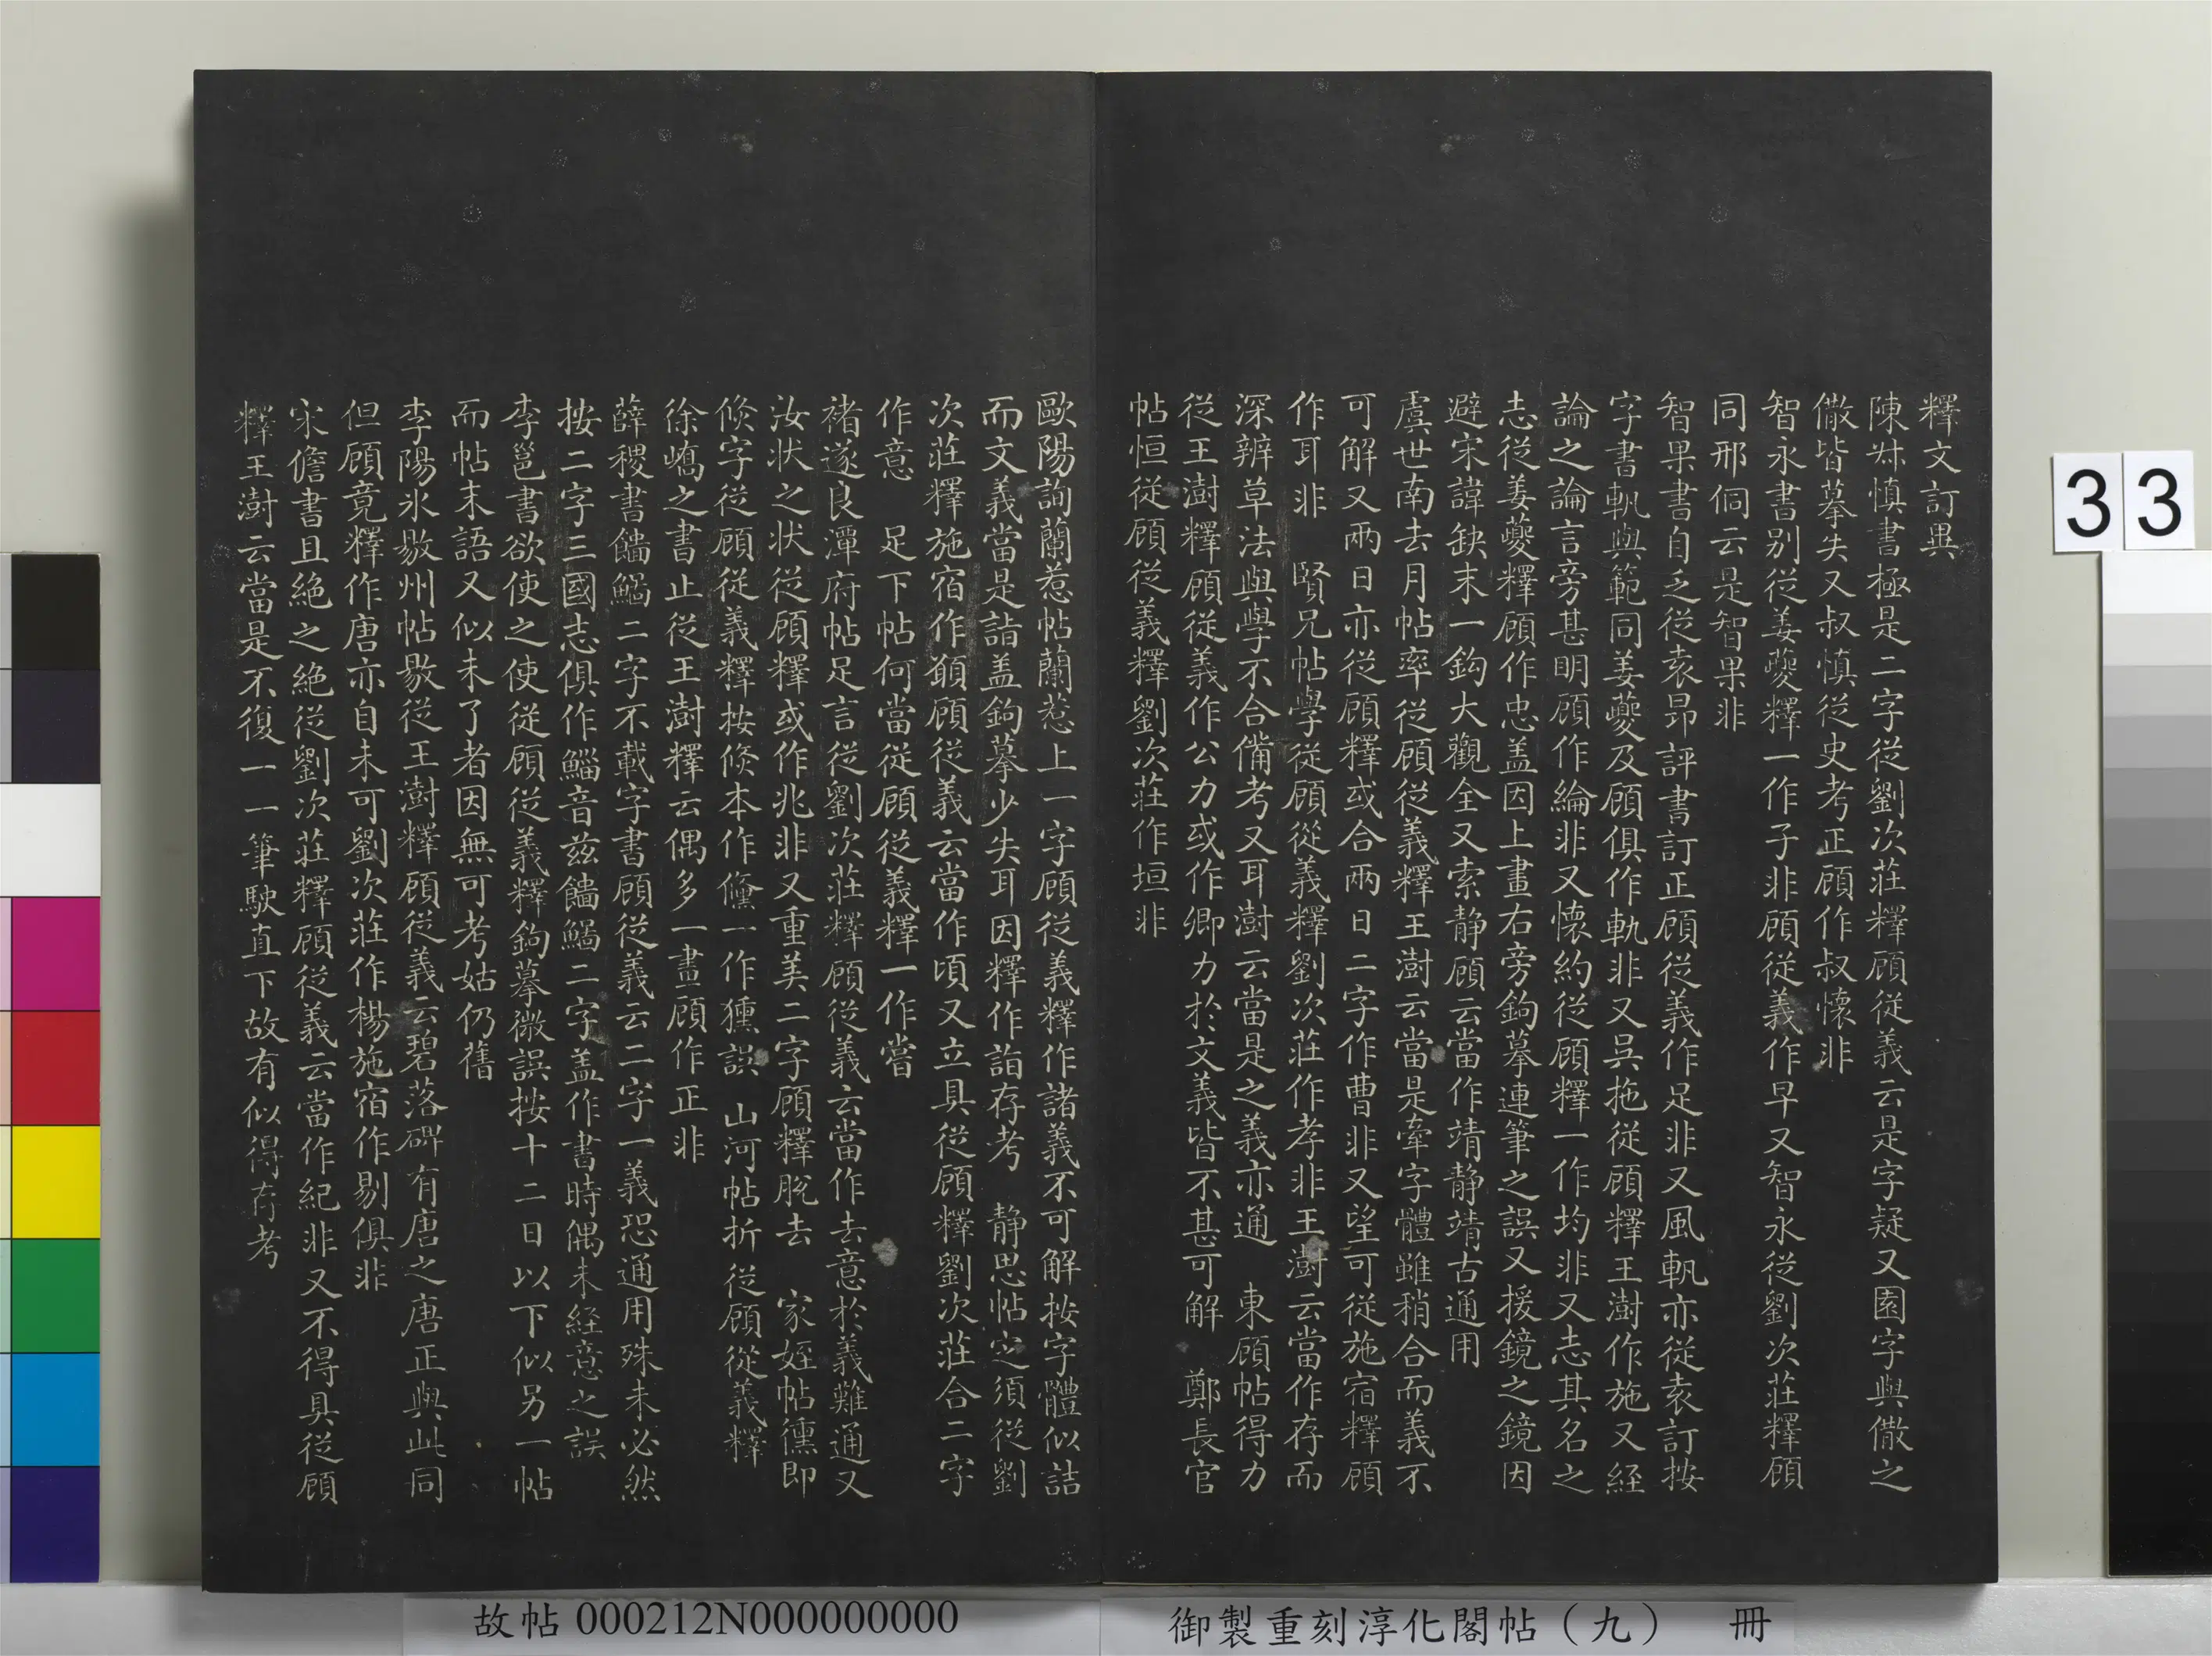 釋文訂異
陳叔慎書極是二字從劉次莊釋顧從義云是字疑又園字與儆之
儆皆摹失又叔慎從史考正顧作叔懷非
智永書別從姜夔釋一作子非顧從義作早又智永從劉次莊釋顧
同邢侗云是智果非
智果書自乏從袁昂評書訂正顧從義作足非又風軓亦從袁訂按
字書軓與範同姜夔及顧俱作軌非又吳拖從顧釋王澍作施又経
論之論言旁甚明顧作綸非又懷約從顧釋一作均非又志其名之
志從姜夔釋顧作忠盖因上畫右旁鉤摹連筆之誤又援鏡之鏡因
避宋諱缺末一鈎大觀全又索静顧云當作靖静靖古通用
虞世南去月帖率從顧從義釋王澍云當是牽字體雖稍合而義不
可解又兩日亦從顧釋或合兩日二字作曹非又望可從施宿釋顧
作耳非　賢兄帖學從顧從義釋劉次莊作孝非王澍云當作存而
深辨草法與學不合備考又耳澍云當是之義亦通　東顧帖得力
從王澍釋顧從義作公力或作卿力於文義皆不甚可解　鄭長官
帖恒從顧從義釋劉次莊作垣非
歐陽詢蘭惹帖蘭惹上一字顧從義釋作諸義不可解按字體似詰
而文義當是詣盖鉤摹少失耳因釋作詣存考　静思帖定須從劉
次莊釋施宿作額顧從義云當作頃又立具從顧釋劉次莊合二字
作意　足下帖何當從顧從義釋一作嘗
褚遂良潭府帖足言從劉次莊釋顧從義云當作去意於義難通又
汝状之状從顧釋或作兆非又重美二字顧釋脫去　家姪帖儵即
倐字從顧從義釋按倐本作儵一作獯誤　山河帖折從顧從義釋
徐嶠之書止從王澍釋云偶多一畫顧作正非
薛稷書䭨䱹二字不載字書顧從義云二字一義恐通用殊未必然
按二字三國志俱作鯔音兹䭨䱹二字盖作書時偶未経意之誤
李邕書欲使之使從顧從義釋鉤摹微誤按十二日以下似另一帖
而帖末語又似未了者因無可考姑仍舊
李陽冰敭州帖敭從王澍釋顧從義云碧落碑有唐之唐正與此同
但顧竟釋作唐亦自未可劉次莊作楊施宿作剔俱非
宋儋書且絶之絶從劉次莊釋顧從義云當作紀非又不得具從顧
釋王澍云當是不復一一筆駛直下故有似得存考
33
故帖 000212N000000000
御製重刻淳化閣帖（九）　冊